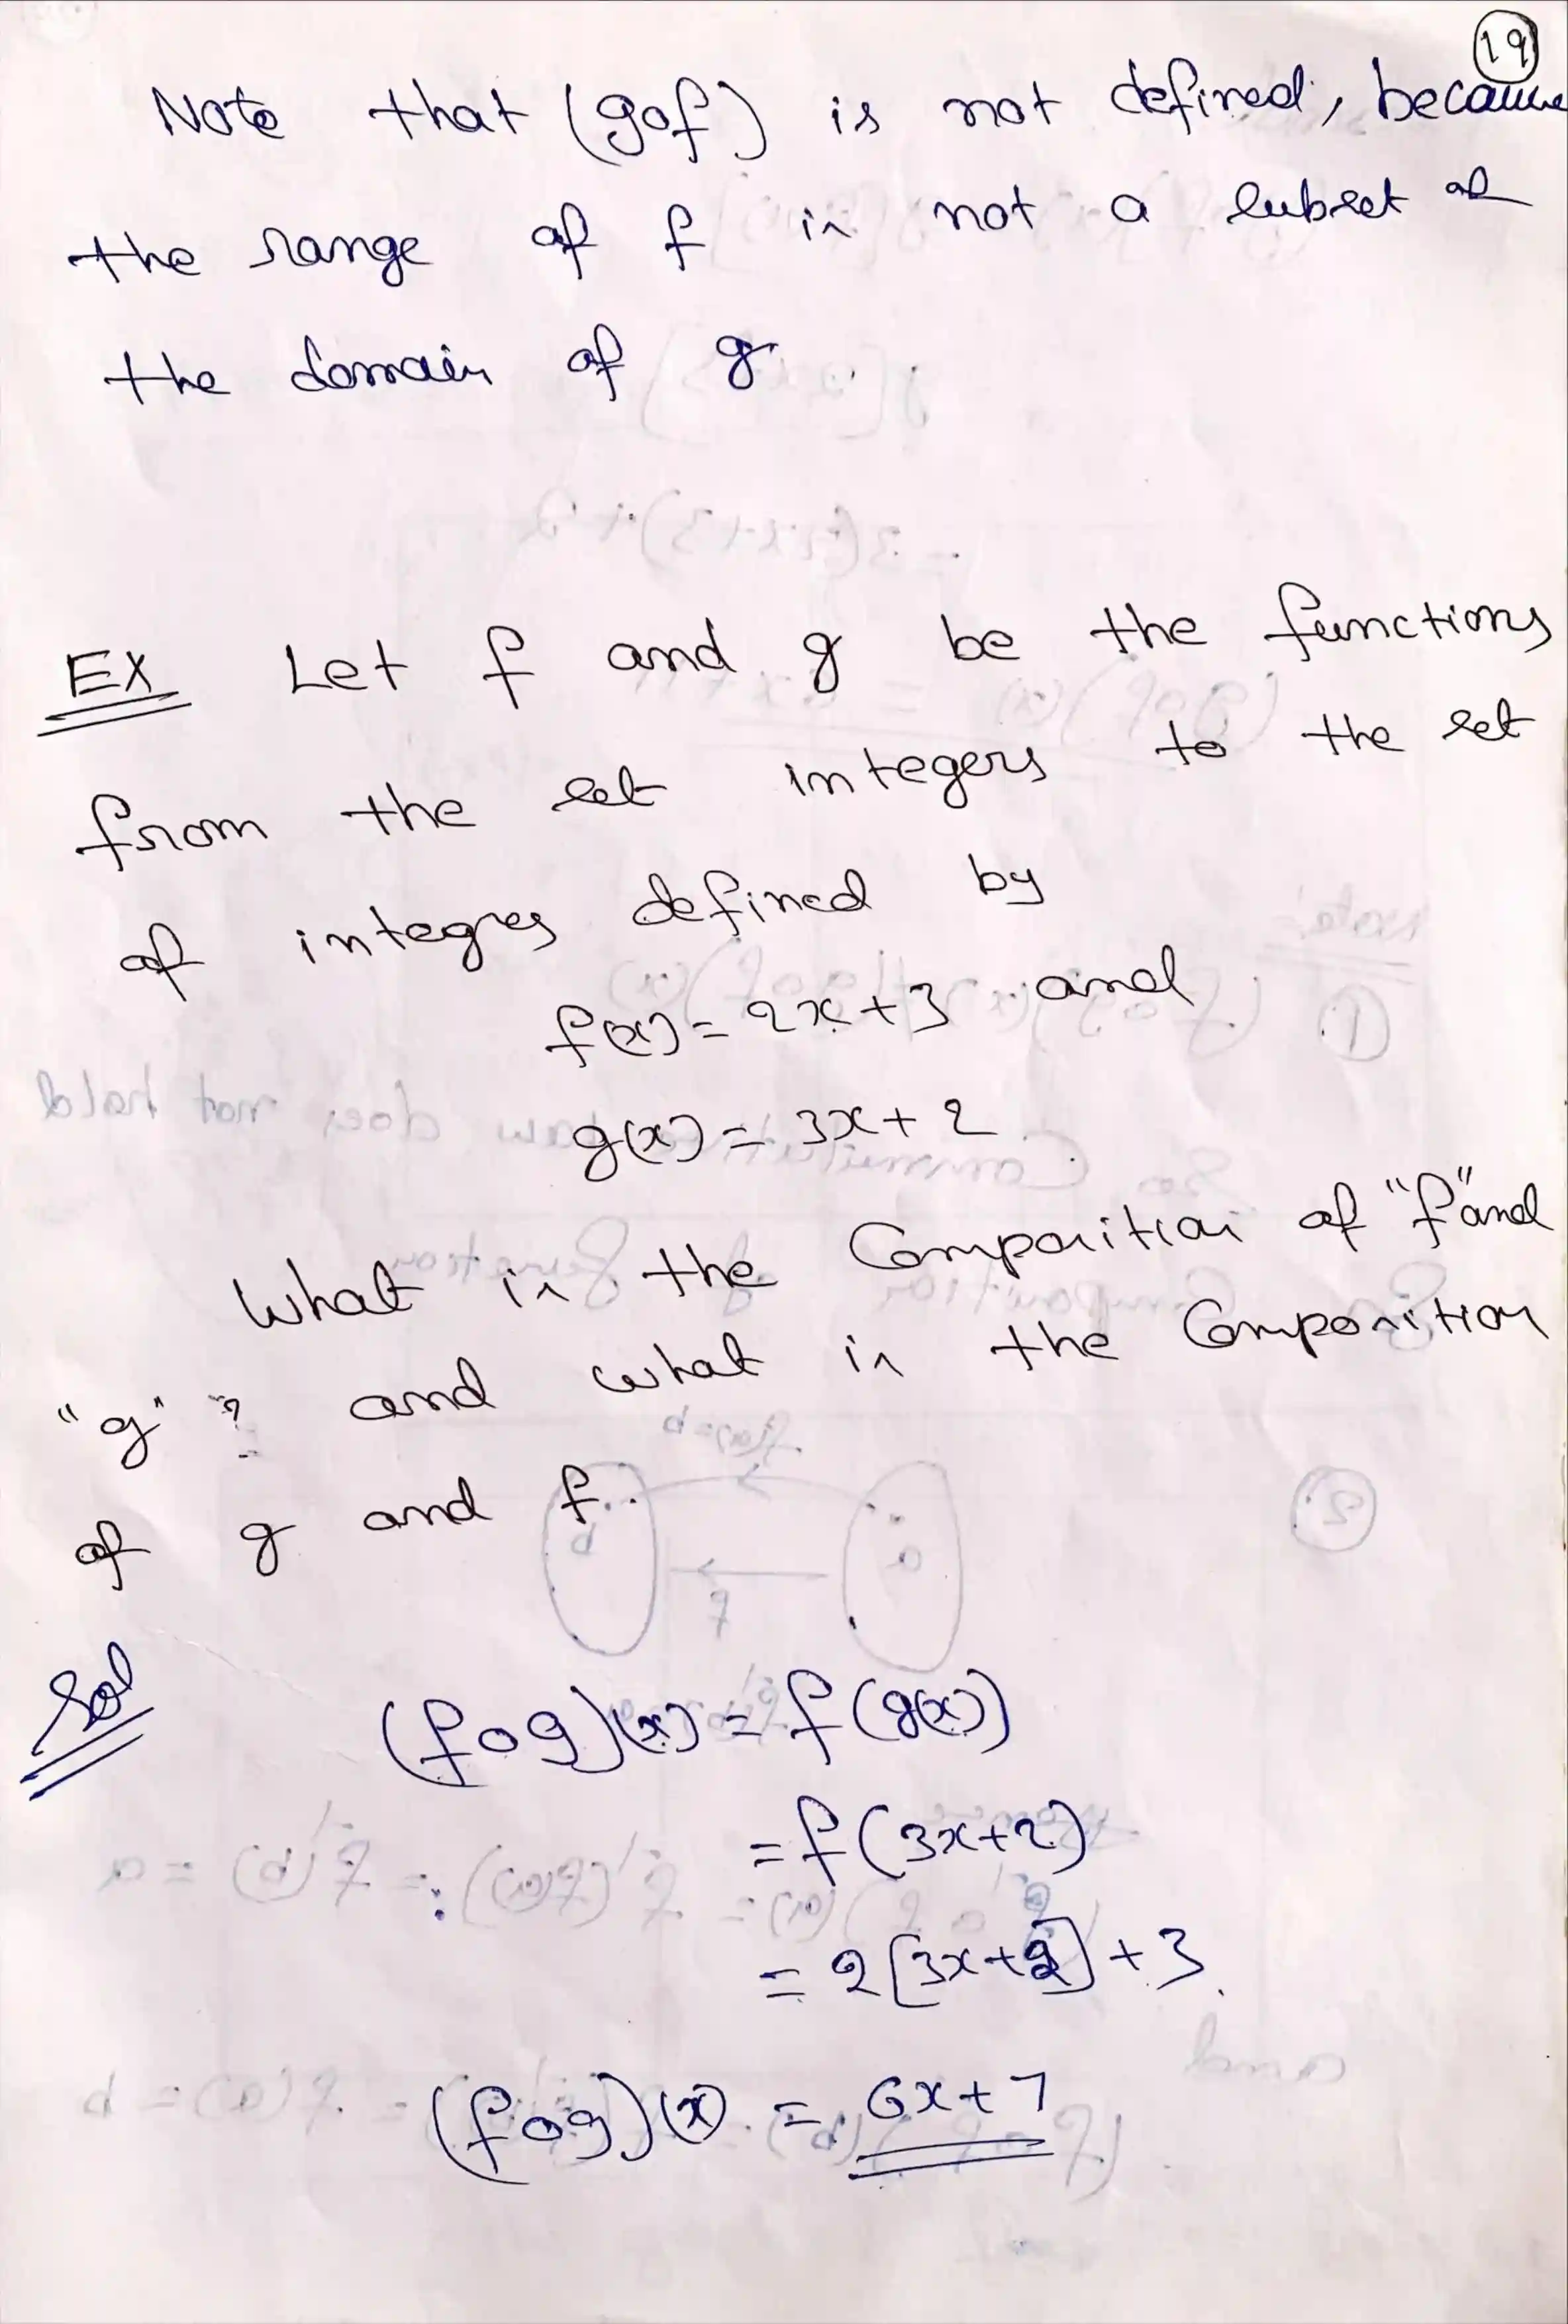 19
Note that (gof) is not defined, because
the range of f is not a subset of
the domain of g
EX Let f and g be the functions
from the set integers to the set
of integres defined by
f(x) = 2x+3 and
g(x) = 3x+2.
What is the Composition of "f" and
"g"? and what is the Composition
of g and f.
Sol (fog)(x) = f(g(x))
= f(3x+2)
= 2[3x+2]+3.
(fog)(x) = 6x+7